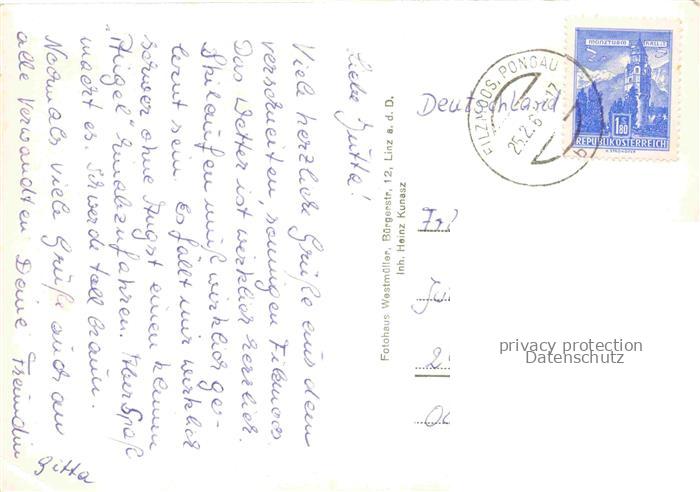 Liebe Jutta!
Viele herzliche Grüße aus dem
verschneiten, sonnigen Filzmoos.
Das Wetter ist wirklich herrlich.
Skilaufen muß wirklich ge-
lernt sein. Es fällt mir wirklich
schwer ohne Angst einen kleinen
"Hügel" runterzufahren. Aber Spaß
macht es. Ich werde toll braun.
Nochmals viele Grüße auch an
alle Verwandten Deine Freundin
Gitta
Fotohaus Westmüller, Bürgerstr. 12, Linz a. d. D.
Inh. Heinz Kunasz
FILZMOOS, PONGAU
25.2.6
MÜNZTURM HALL i. T.
S 1.80
REPUBLIK ÖSTERREICH
Deutschland
privacy protection
Datenschutz